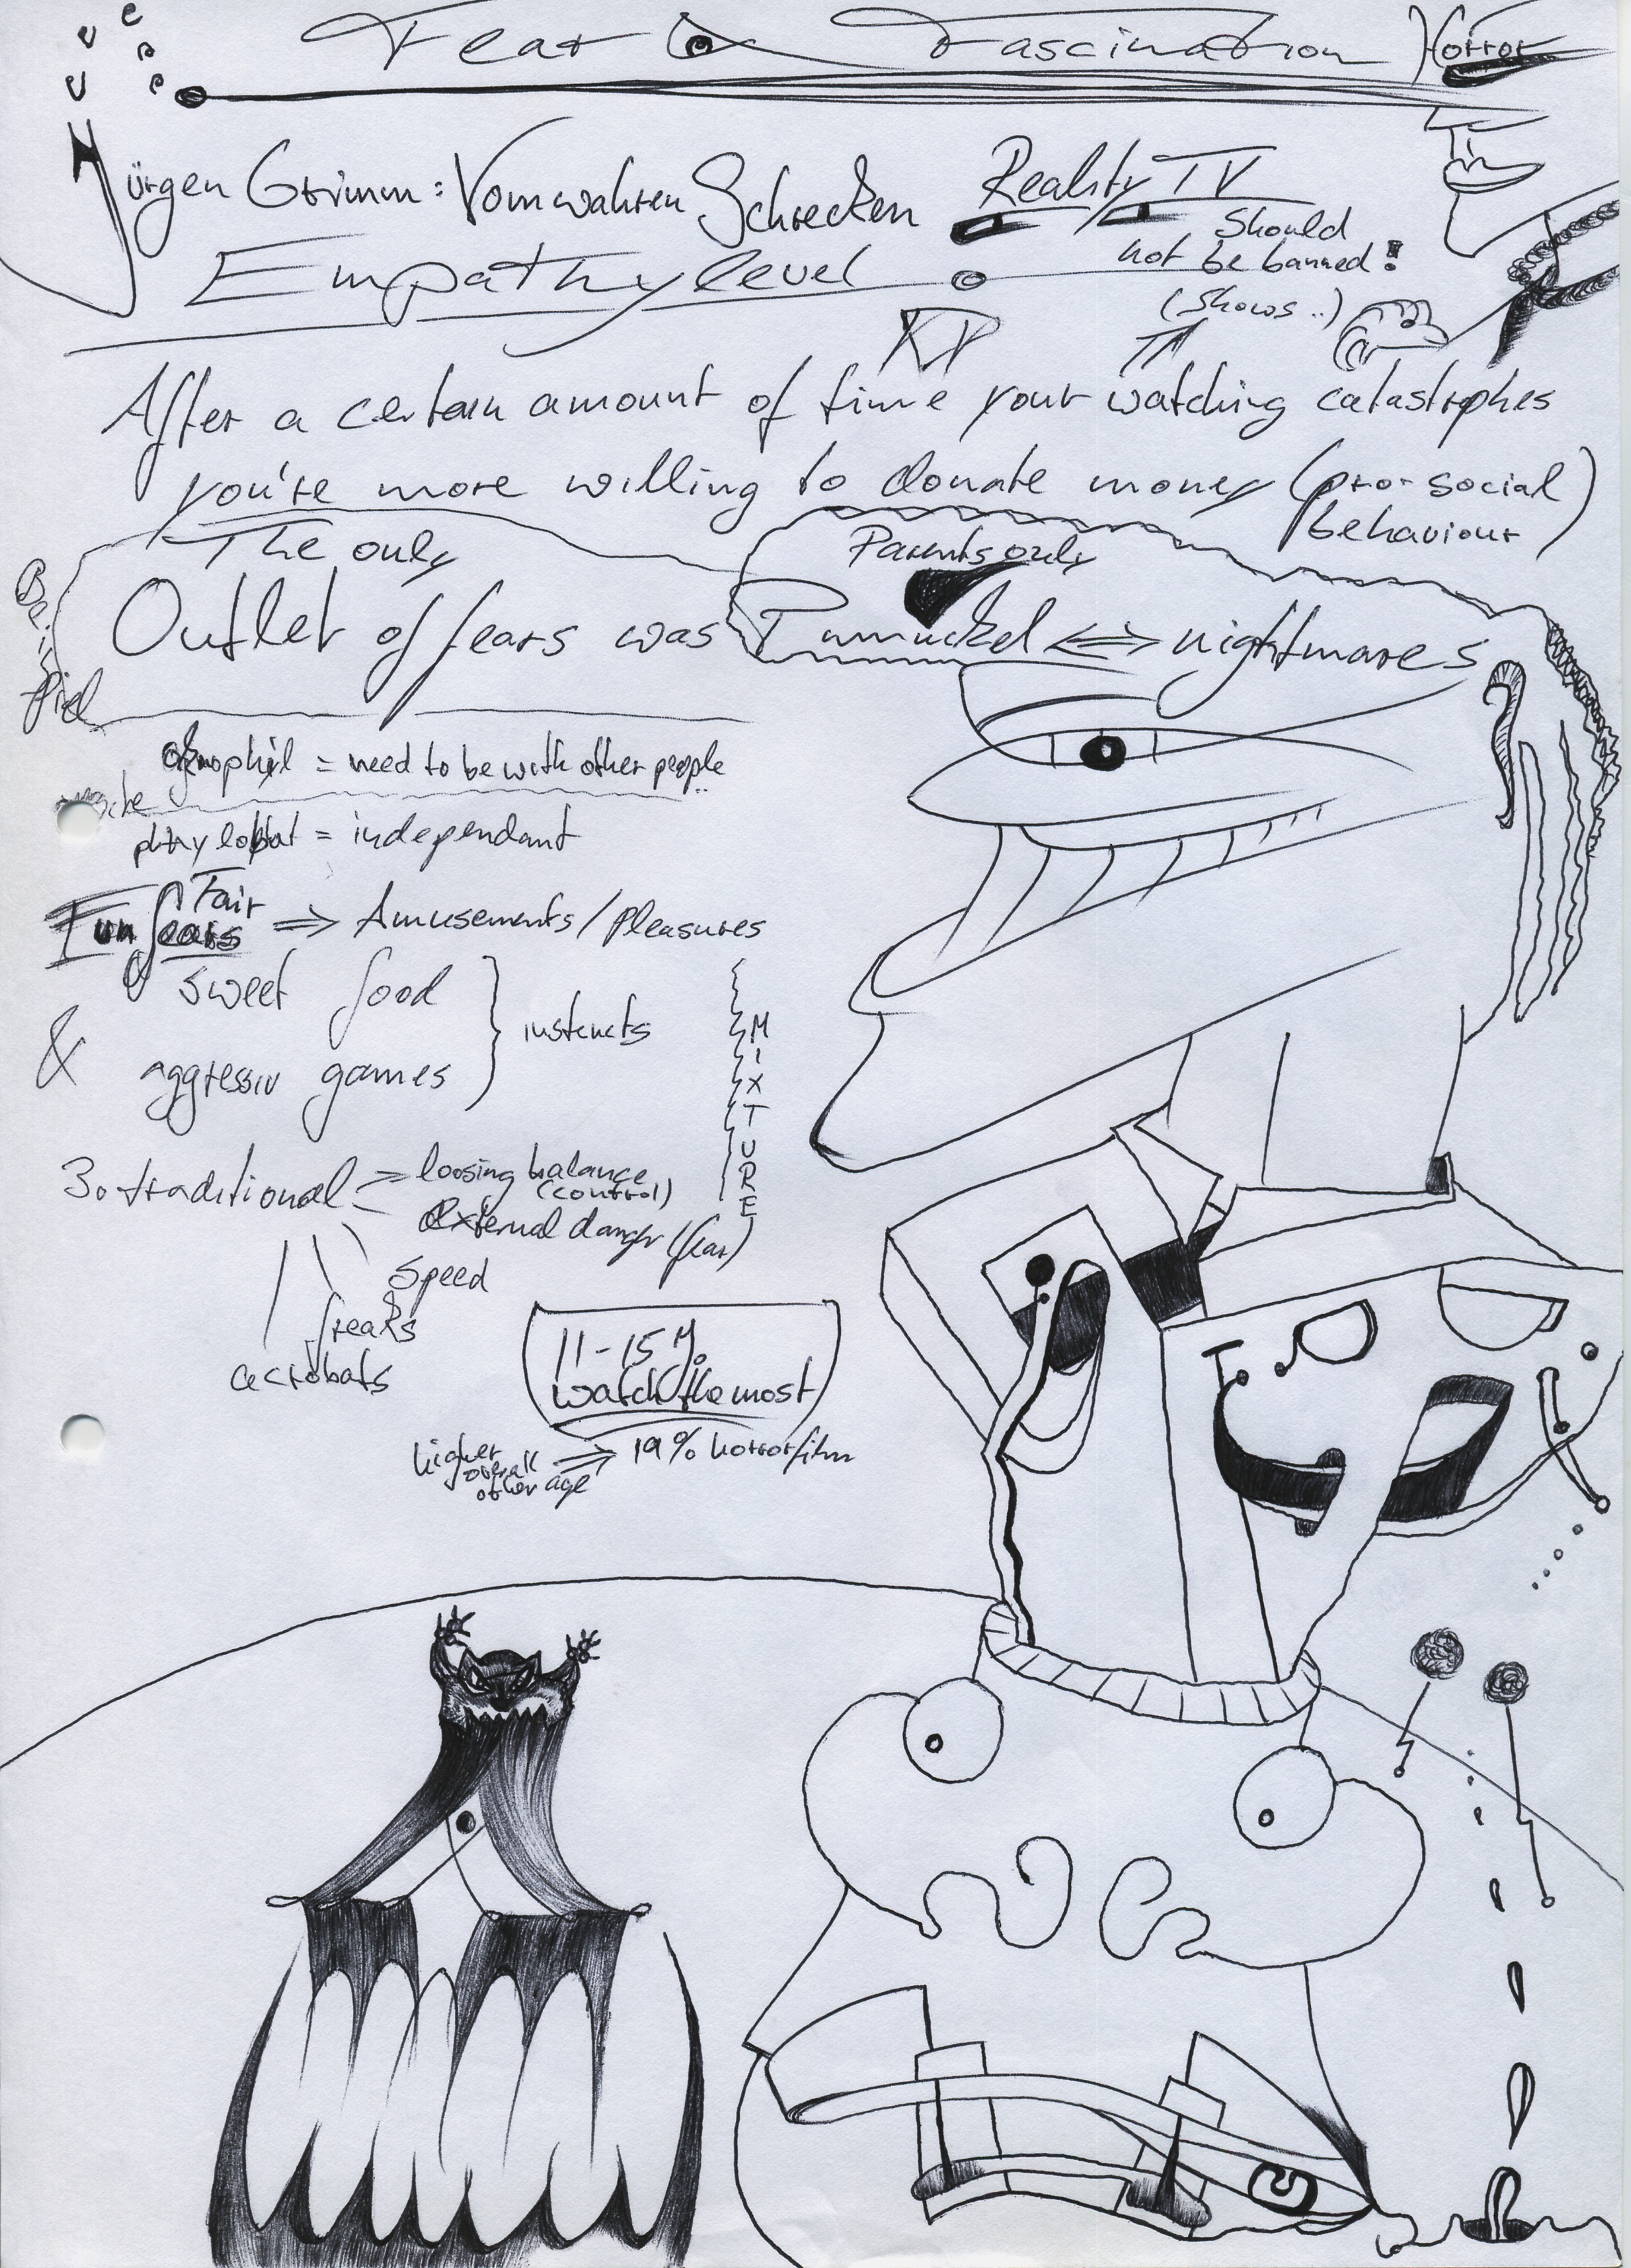 Fear & Fascination Horror
Jürgen Grimm: Vom wahren Schrecken
Reality TV
should
not be banned!
(shows..)
Empathy level
After a certain amount of time your watching catastrophes
you're more willing to donate money (pro-social
behaviour)
The only
Parents only
Outlet of fears was Pumuckel <=> nightmares
= need to be with other people
= independant
Fair
Fun fears => Amusements/Pleasures
sweet food
& aggressiv games
instincts
MIXTURE
3. traditional = loosing balance
(control)
external danger (fear)
speed
freaks
acrobats
11-15 y.
watch the most
higher
overall
other age
=> 19% horrorfilm